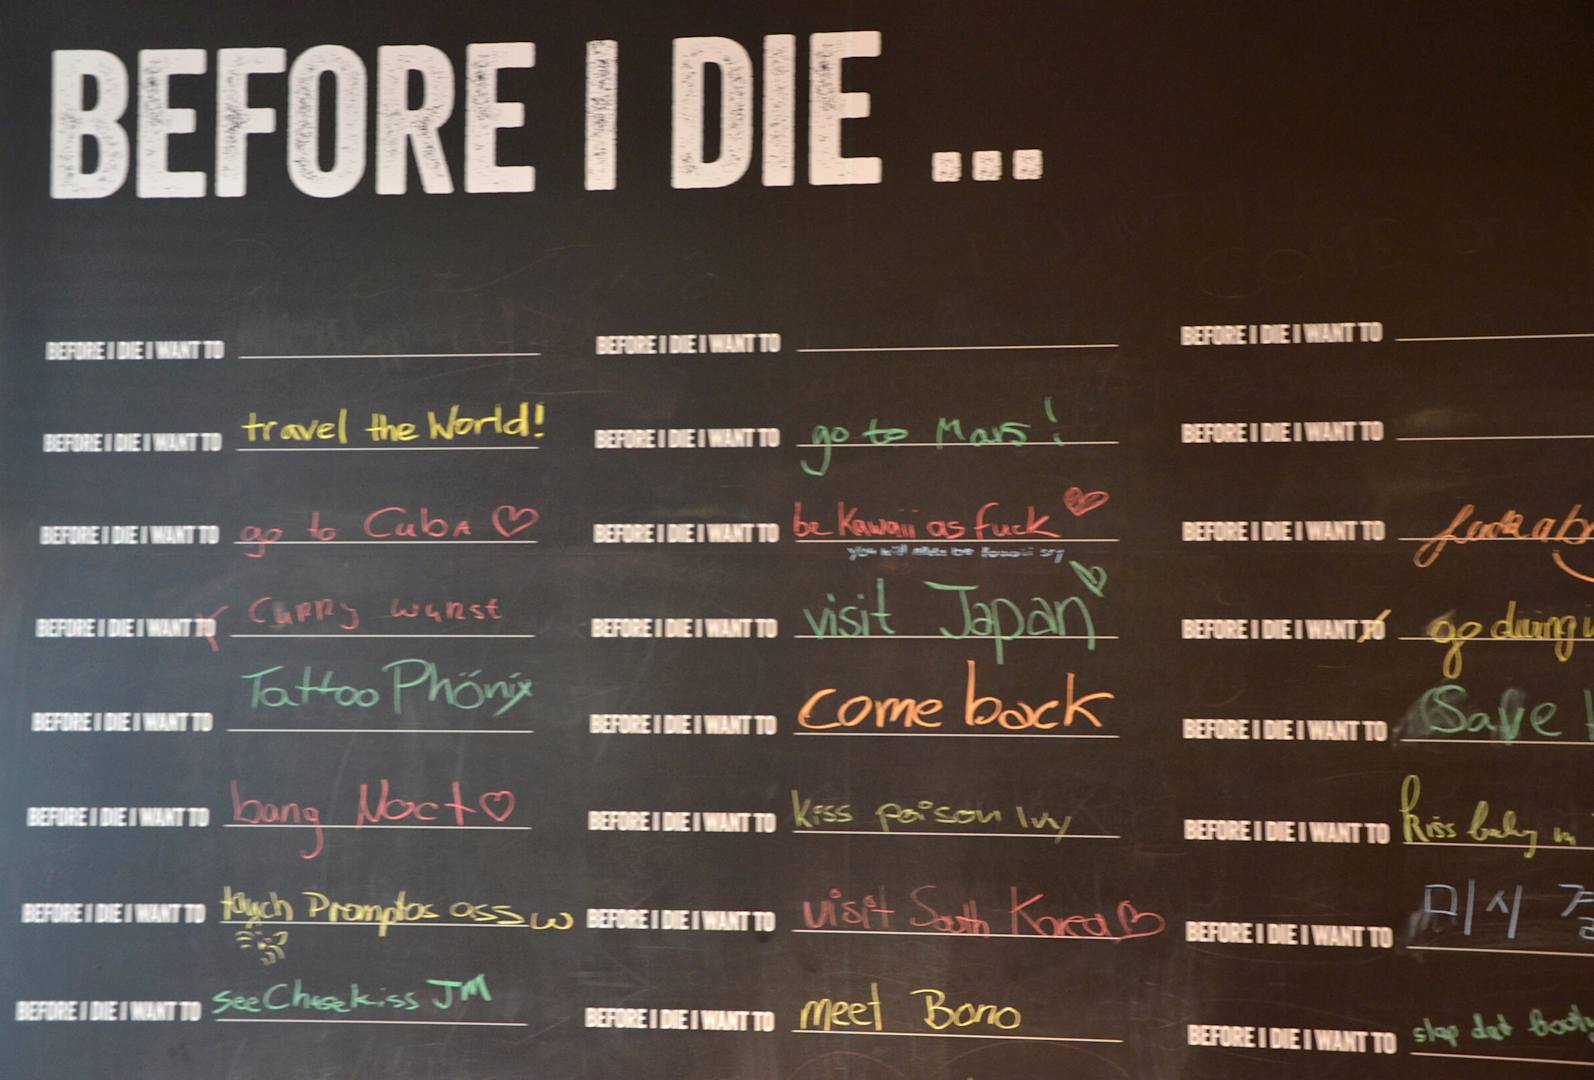 BEFORE I DIE ...
BEFORE I DIE I WANT TO
BEFORE I DIE I WANT TO travel the World!
BEFORE I DIE I WANT TO go to Cuba
BEFORE I DIE I WANT TO Curry wurst
BEFORE I DIE I WANT TO Tattoo Phönix
BEFORE I DIE I WANT TO bang Noct
BEFORE I DIE I WANT TO touch Promptos ass
BEFORE I DIE I WANT TO see kiss JM
BEFORE I DIE I WANT TO
BEFORE I DIE I WANT TO go to Mars!
BEFORE I DIE I WANT TO be Kawaii as fuck
you will never be kawaii sry
BEFORE I DIE I WANT TO visit Japan
BEFORE I DIE I WANT TO come back
BEFORE I DIE I WANT TO kiss poison Ivy
BEFORE I DIE I WANT TO visit South Korea
BEFORE I DIE I WANT TO meet Bono
BEFORE I DIE I WANT TO
BEFORE I DIE I WANT TO
BEFORE I DIE I WANT TO
BEFORE I DIE I WANT TO go diving
BEFORE I DIE I WANT TO Save
BEFORE I DIE I WANT TO kiss
BEFORE I DIE I WANT TO 미시
BEFORE I DIE I WANT TO slap dat booty